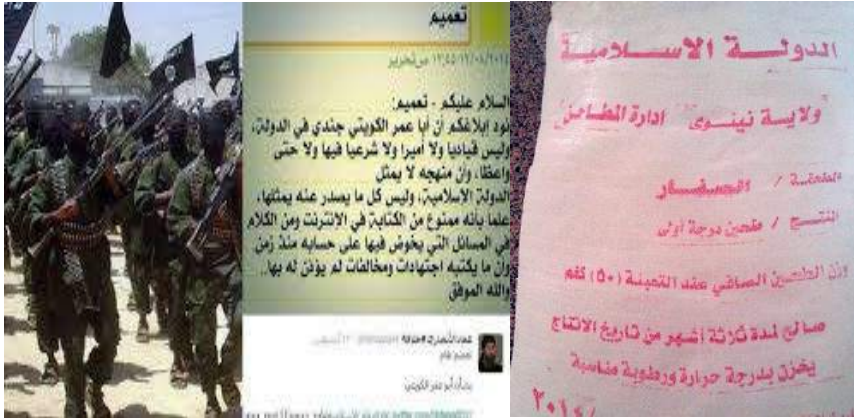 تعميم
السلام عليكم - تعميم:
نود إبلاغكم أن أبا عمر الكويتي جندي في الدولة،
وليس قياديا ولا أميرا ولا شرعيا فيها ولا حتى
واعظا، وأن منهجه لا يمثل
الدولة الاسلامية، وليس كل ما يصدر عنه يمثلها،
علما بأنه ممنوع من الكتابة في الانترنت ومن الكلام
في المسائل التي يخوض فيها على حسابه منذ زمن
وان ما يكتبه اجتهادات ومخالفات لم يؤذن له بها..
والله الموفق
الدولة الاسلامية
"ولاية نينوى" ادارة المطاحن
المطحنة / الصفار
المنتج / طحين درجة أولى
وزن الطحين الصافي عند التعبئة (٥٠) كغم
صالح لمدة ثلاثة أشهر من تاريخ الانتاج
يخزن بدرجة حرارة ورطوبة مناسبة
/٢٠١٤